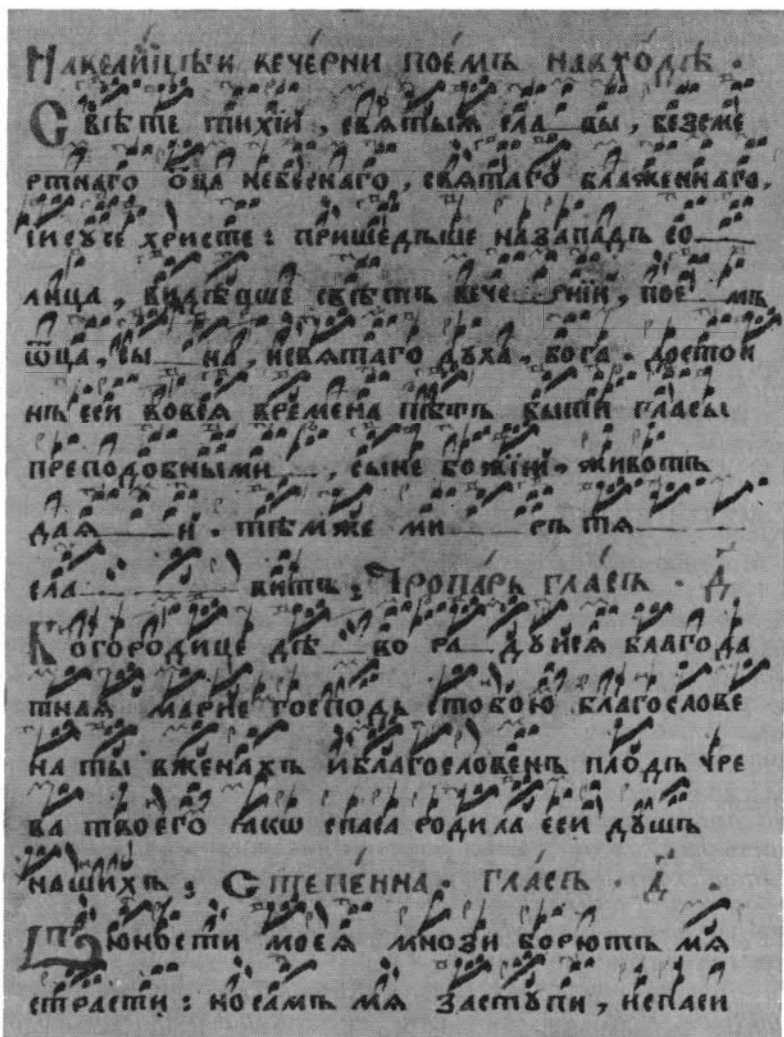 Наѵелиицѣй вечерни пое́мъ навхо́дѣ ·
Свѣте тихїй, святыѧ сла вы, безсме
ртнаго о҃ца небеснаго, святаго блаженнаго,
їисусе христе : пришедъше назападъ со
лнца, видѣвше свѣтъ вече рнїи, пое мъ
ѿца, сы на, исвятаго дꙋха, бога · достои
нъ еси вовсѧ времена пѣтъ быти гласы
преподобными , сыне божїй, животъ
даѧ и · тѣмже ми ръ тѧ
сла витъ : Тропа́рь гла́съ · д҃
Богородице дѣ во ра дꙋйсѧ благода
тнаѧ марие господь стобою благослове
на ты вженахъ иблагословенъ плодъ чре
ва твоего ꙗкѡ спаса родила еси дꙋшъ
нашихъ : Степе́нна · гла́съ · д҃ ·
Ѿ юности моеѧ мнози борютъ мѧ
страсти :носамъ мѧ застꙋпи, испаси